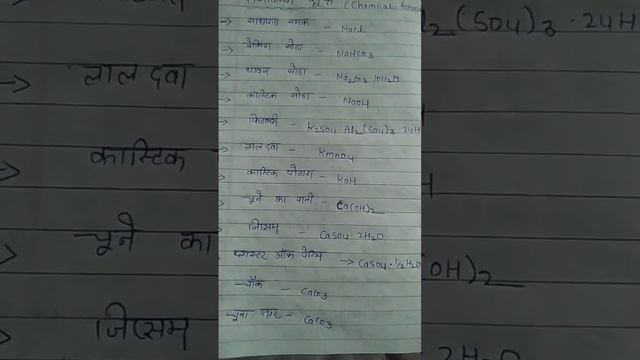 रासायनिक सूत्र (Chemical form
→ साधारण नमक - NaCl
→ बेकिंग सोडा - NaHCO3
→ धावन सोडा - Na2CO3 10H2O
→ कास्टिक सोडा - NaOH
→ फिटकरी - K2SO4 Al2(SO4)3·24H
→ लाल दवा - KmnO4
→ कास्टिक पोटाश - KOH
→ चूने का पानी - Ca(OH)2
→ जिप्सम - CaSO4·2H2O
प्लास्टर ऑफ पेरिस → CaSO4·½H2O
चॉक - CaCO3
चूना पत्थर - CaCO3
l2(SO4)3·24H
→ लाल दवा
कास्टिक
चूने का
(OH)2
जिप्सम
2H2O